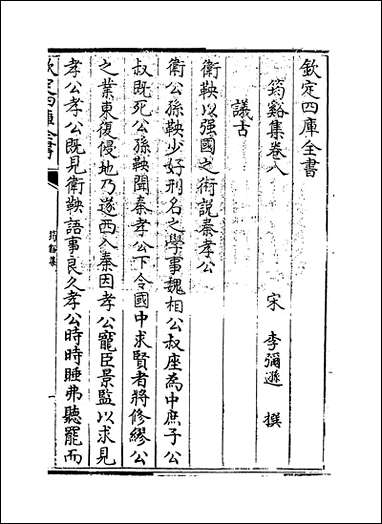 欽定四庫全書
筠谿集卷八
宋 李彌遜 撰
議古
衛鞅以强國之術説秦孝公
衛公孫鞅少好刑名之學事魏相公叔座為中庶子公
叔既死公孫鞅聞秦孝公下令國中求賢者將修繆公
之業東復侵地乃遂西入秦因孝公寵臣景監以求見
孝公孝公既見衛鞅語事良久孝公時時睡弗聽罷而
欽定四庫全書
筠谿集
一